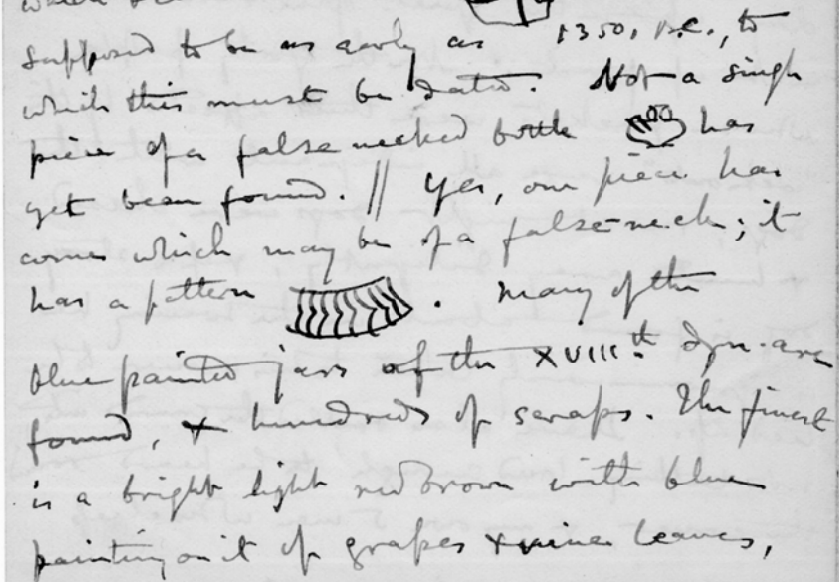 supposed to be as early as 1350, B.C., to
which this must be dated. Not a single
piece of a false necked bottle has
yet been found. // Yes, one piece has
come which may be of a false-neck; it
has a pattern . Many of the
blue painted jars of the XVIII.th Dyn. are
found, & hundreds of scraps. The finest
is a bright light red brown with blue
painting on it of grapes & vine leaves,